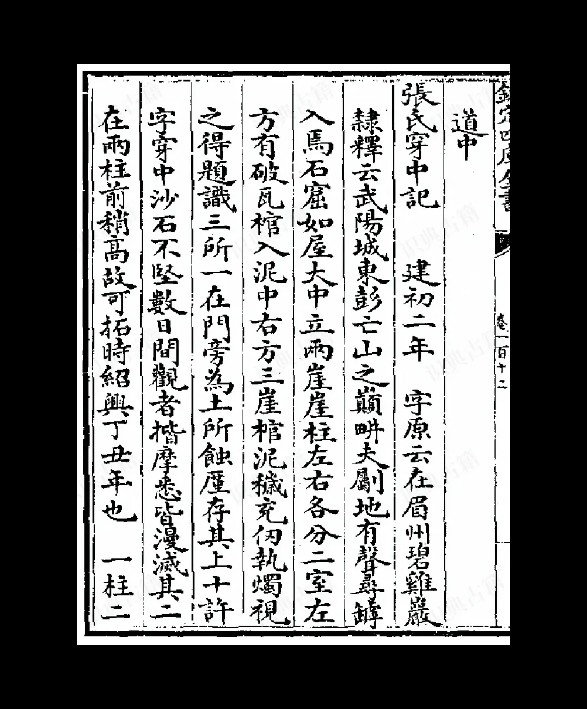 欽定四庫全書
卷一百十二
道中
張氏穿中記 建初二年 字原云在眉州碧雞巖
隸釋云武陽城東彭亡山之巔畊夫劚地有聲尋罅
入焉石窟如屋大中立兩崖崖柱左右各分二室左
方有破瓦棺入泥中右方三崖棺泥穢充仞執燭視
之得題識三所一在門旁為土所蝕厪存其上十許
字穿中沙石不堅數日間觀者揩摩悉皆漫滅其二
在兩柱前稍高故可拓時紹興丁丑年也 一柱二